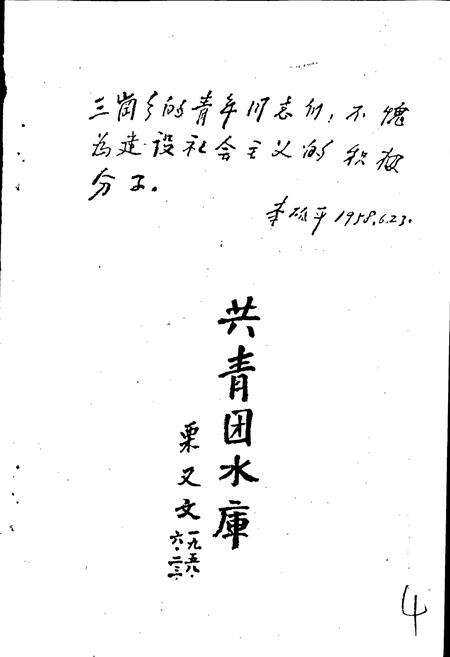 三岗乡的青年同志们，不愧
为建设社会主义的积极
分子。
李 平 1958.6.23.
共青团水庫
栗又文
一九五八·
六·二三·
4